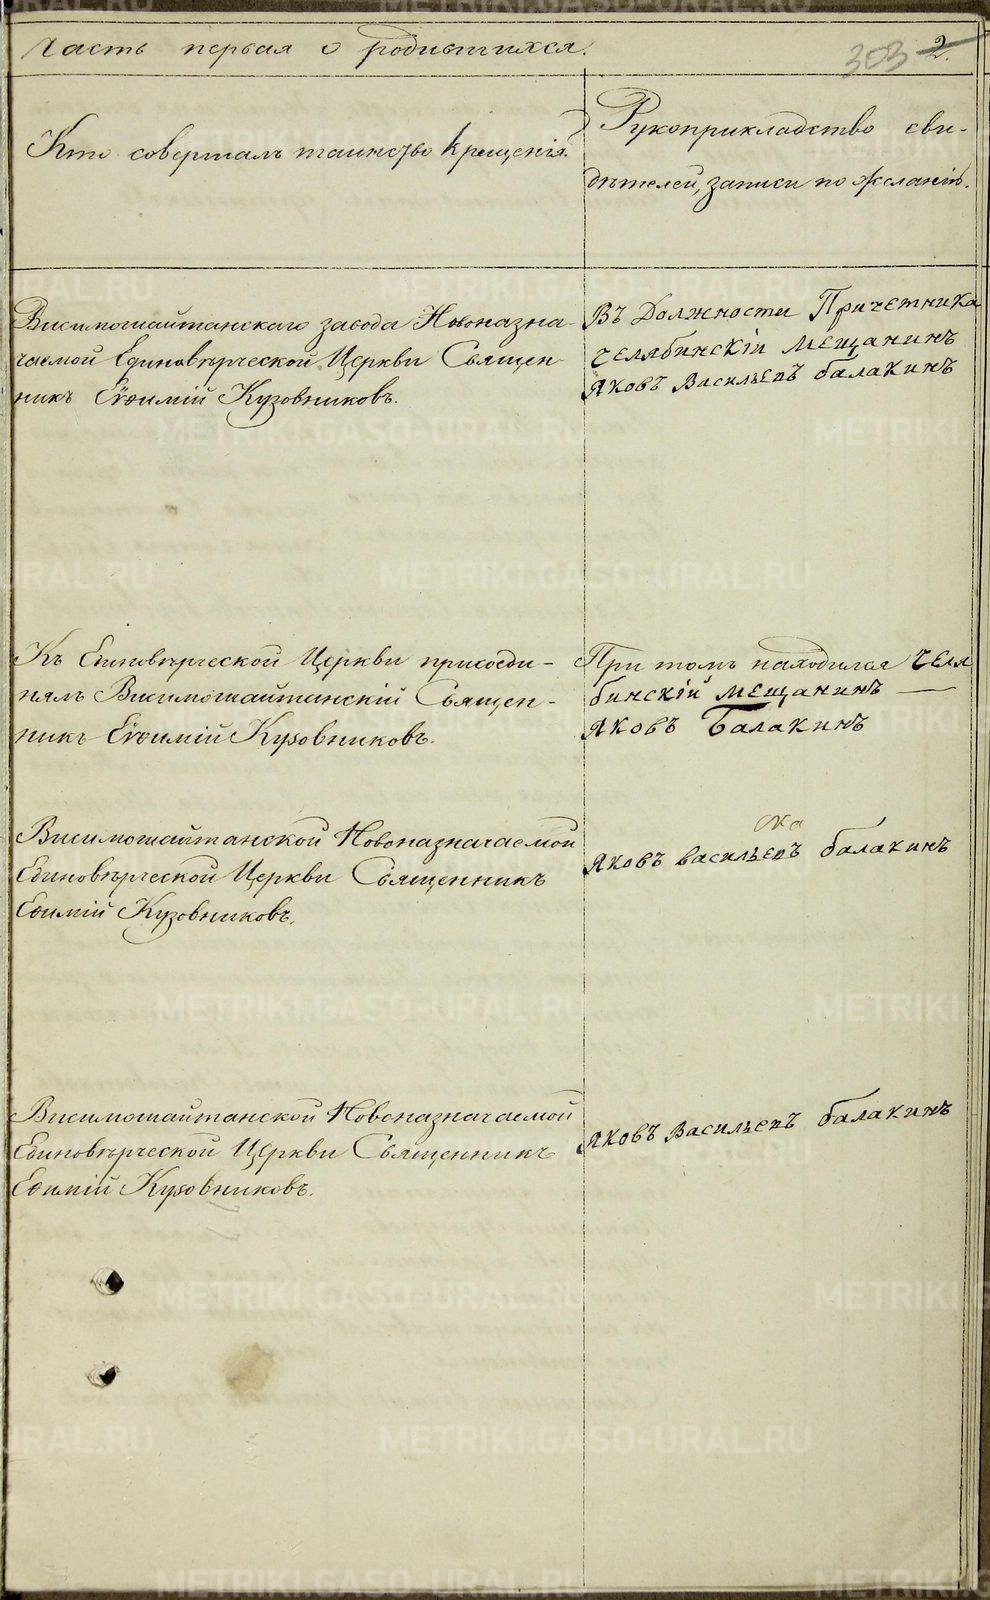 Часть первая о родившихся.
303 2.
Кто совершалъ таинство крещенія.
Рукоприкладство сви-
дѣтелей, записи по желанію.
Висимошайтанскаго завода Новоназна-
чаемой Единовѣрческой Церкви Священ-
никъ Еѵѳимій Кузовниковъ.
Въ Должности Причетника
челябинскій мещанинъ
Яковъ Васильевъ балакинъ
Къ Единовѣрческой Церкви присоеди-
нялъ Висимошайтанскій Священ-
никъ Еѵѳимій Кузовниковъ.
При томъ находился челя
бинскій мещанинъ —
Яковъ Балакинъ
Висимошайтанской Новоназначаемой
Единовѣрческой Церкви Священникъ
Еѳимій Кузовниковъ.
Яковъ васильевъ балакинъ
Висимошайтанской Новоназначаемой
Единовѣрческой Церкви Священникъ
Еѳимій Кузовниковъ.
Яковъ Васильевъ балакинъ
METRIKI.GASO-URAL.RU